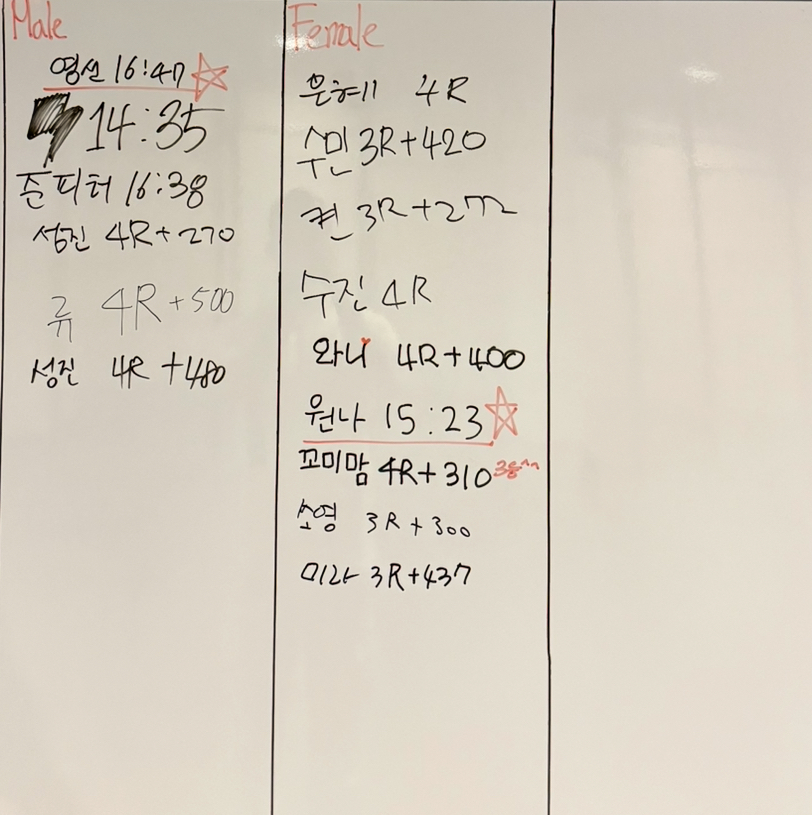 Male
영선 16:47
14:35
준피터 16:38
성진 4R+270
류 4R+500
성진 4R+480
Female
은혜 4R
수민 3R+420
퀸 3R+272
수진 4R
와니 4R+400
원나 15:23
꼬미맘 4R+310 38^^
소영 3R+300
미라 3R+437